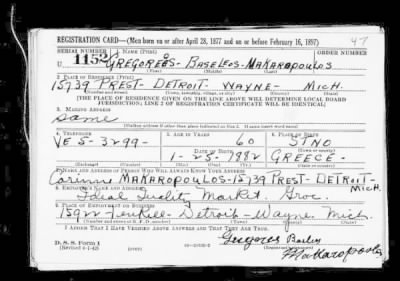 REGISTRATION CARD—(Men born on or after April 28, 1877 and on or before February 16, 1897)
47
SERIAL NUMBER 1. NAME (Print) ORDER NUMBER
U 1152 GREGOREOS - BASELEOS - MAKAROPOULOS
(First) (Middle) (Last)
2. PLACE OF RESIDENCE (Print)
15739 PREST - DETROIT - WAYNE - MICH.
(Number and street) (Town, township, village, or city) (County) (State)
[THE PLACE OF RESIDENCE GIVEN ON THE LINE ABOVE WILL DETERMINE LOCAL BOARD
JURISDICTION; LINE 2 OF REGISTRATION CERTIFICATE WILL BE IDENTICAL]
3. MAILING ADDRESS
same
[Mailing address if other than place indicated on line 2. If same insert word same]
4. TELEPHONE 5. AGE IN YEARS 6. PLACE OF BIRTH
VE 5-3299- 60 STNO
DATE OF BIRTH
1 - 25 - 1882 GREECE -
(Exchange) (Number) (Mo.) (Day) (Yr.) (State or country)
7. NAME AND ADDRESS OF PERSON WHO WILL ALWAYS KNOW YOUR ADDRESS
MAKAROPULOS - 15739 PREST - DETROIT -
MICH.
8. EMPLOYER'S NAME AND ADDRESS
Ideal Quality Market. Groc.
9. PLACE OF EMPLOYMENT OR BUSINESS
Detroit - Wayne Mich.
(County) (State)
I AFFIRM THAT I HAVE VERIFIED ABOVE ANSWERS AND THAT THEY ARE TRUE.
D. S. S. Form 1
(Revised 4-1-42) (over)
Makaropoulos